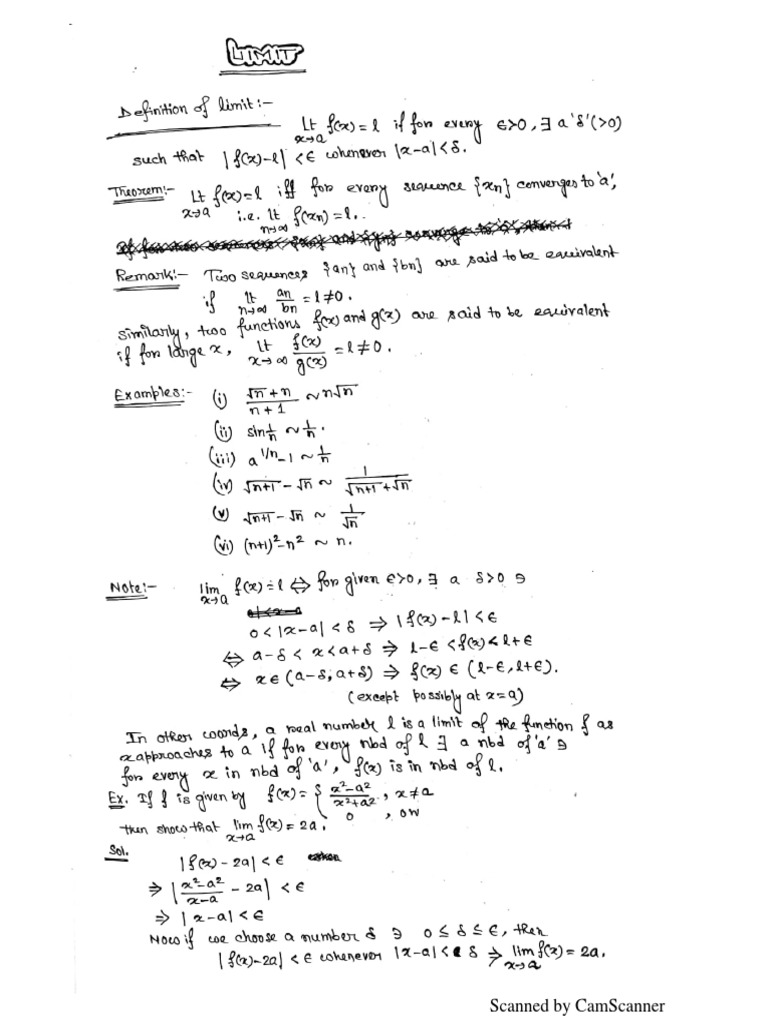 LIMIT
Definition of limit:-
Lt f(x) = l if for every ε>0, ∃ a 'δ'(>0)
x→a
such that |f(x)-l| < ε whenever |x-a| < δ.
Theorem:- Lt f(x) = l iff for every sequence {xn} converges to 'a',
x→a
i.e. lt f(xn) = l.
n→∞
Remark:- Two sequences {an} and {bn} are said to be equivalent
if lt an/bn = l ≠ 0.
n→∞
similarly, two functions f(x) and g(x) are said to be equivalent
if for large x, lt f(x)/g(x) = l ≠ 0.
x→∞
Examples:- (i) √n + n / n + 1 ~ n√n
(ii) sin 1/n ~ 1/n.
(iii) a^1/n - 1 ~ 1/n
(iv) √n+1 - √n ~ 1/√n+1 + √n
(v) √n+1 - √n ~ 1/√n
(vi) (n+1)² - n² ~ n.
Note:- lim f(x) = l ⇔ for given ε>0, ∃ a δ>0 ∋
x→a
0 < |x-a| < δ ⇒ |f(x)-l| < ε
⇔ a-δ < x < a+δ ⇒ l-ε < f(x) < l+ε
⇔ x ∈ (a-δ, a+δ) ⇒ f(x) ∈ (l-ε, l+ε).
(except possibly at x=a)
In other words, a real number l is a limit of the function f as
x approaches to a if for every nbd of l ∃ a nbd of 'a' ∋
for every x in nbd of 'a', f(x) is in nbd of l.
Ex. If f is given by f(x) = { x²-a²/x²+a², x≠a
0, ow
then show that lim f(x) = 2a.
x→a
Sol.
|f(x) - 2a| < ε
⇒ |x²-a²/x-a - 2a| < ε
⇒ |x-a| < ε
Now if we choose a number δ ∋ 0 ≤ δ ≤ ε, then
|f(x)-2a| < ε whenever |x-a| < δ ⇒ lim f(x) = 2a.
x→a
Scanned by CamScanner